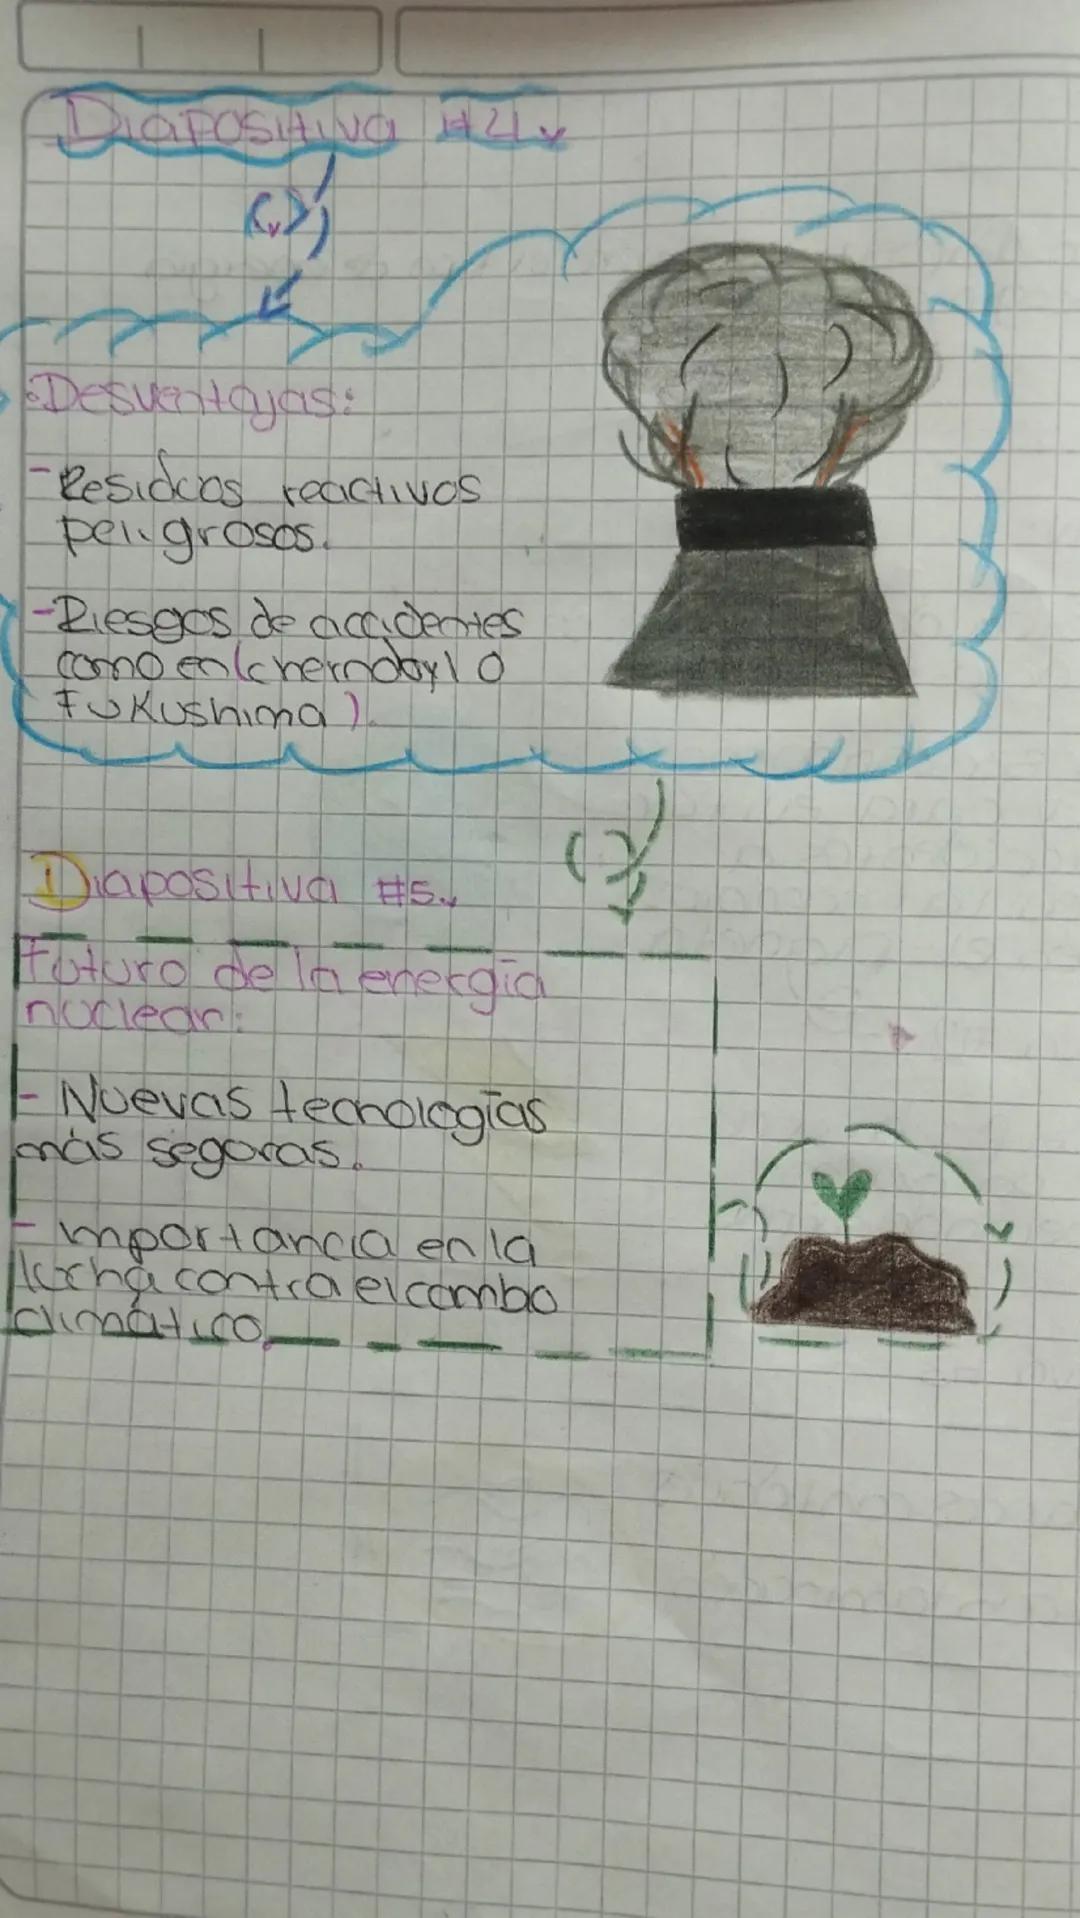 Diapositiva #4.
Desventajas:
- Residuos reactivos
peligrosos.
- Riesgos de accidentes
como en (chernobyl o
Fukushima).
Diapositiva #5.
Futuro de la energía
nuclear:
- Nuevas tecnologías
más seguras.
- importancia en la
lucha contra el cambo
climático.